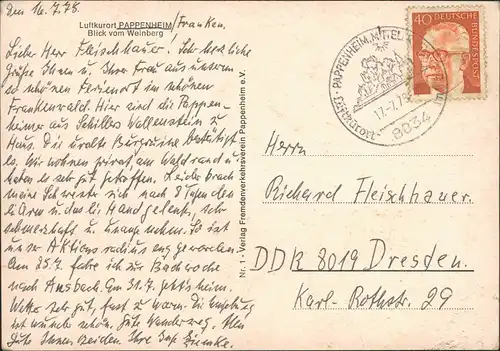 Den 16.7.78.
Luftkurort PAPPENHEIM/Franken.
Blick vom Weinberg
Lieber Herr Fleischhauer. Sehr herzliche
Grüße Ihnen u. Ihrer Frau aus unserem
so schönen Ferienort im schönen
Frankenwald. Hier sind die Pappen-
heimer aus Schillers Wallenstein zu
Haus. Die uralte Burgruine bestätigt
es. Wir wohnen privat am Waldrand u.
haben es sehr gut getroffen. Leider brach
meine Schwester sich nach 8 Tagen den
li Arm u. das li Handgelenk, sehr
schmerzhaft u. unangenehm. So ist
unser Aktionsradius eng geworden.
Am 25.7. fahre ich zur Bachwoche
nach Ansbach. Am 31.7. geht's heim.
Wetter sehr gut, fast zu warm. Die Umgebung
ist wunderschön. Gute Wanderwege. Alles
Gute Ihnen beiden. Ihre
Nr. 1 - Verlag Fremdenverkehrsverein Pappenheim e.V.
PAPPENHEIM, MITTEL
Luftkurort
17.-7.7
8834
40 DEUTSCHE
BUNDESPOST
Herrn
Richard Fleischhauer.
DDR 8019 Dresden.
Karl-Rothstr. 29